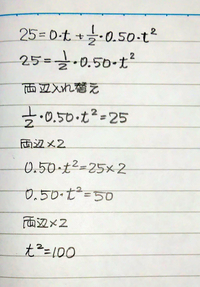 25=0・t+1/2・0.50・t²
25=1/2・0.50・t²
両辺入れ替え
1/2・0.50・t²=25
両辺×2
0.50・t²=25×2
0.50・t²=50
両辺×2
t²=100